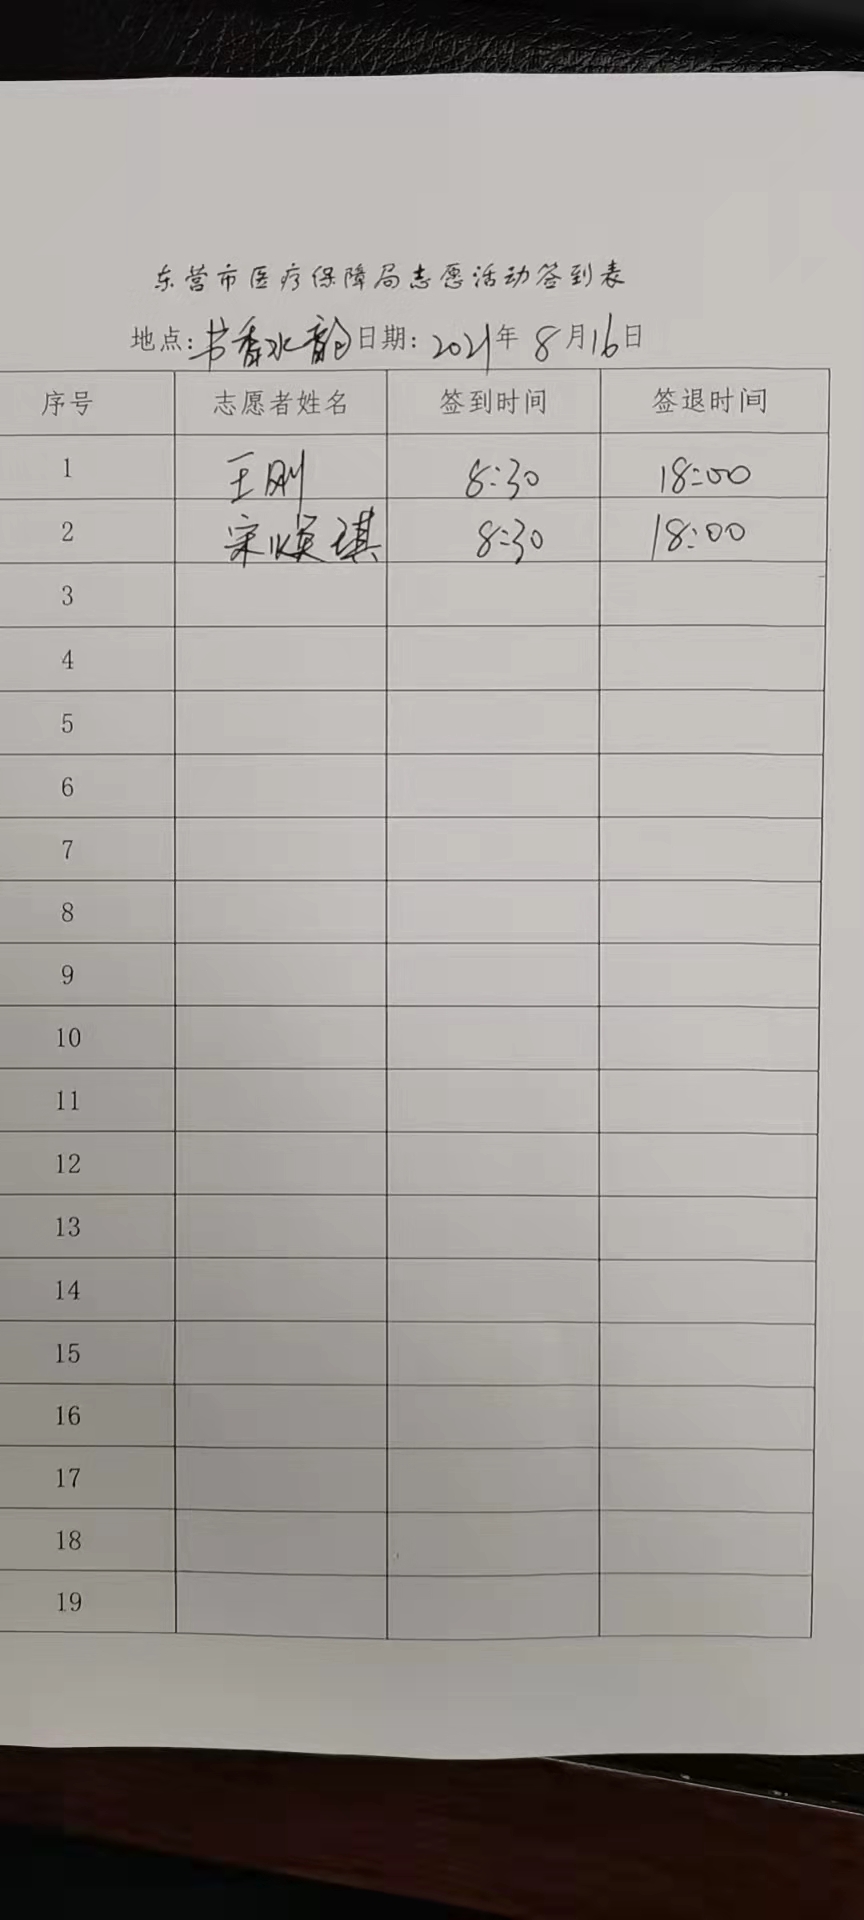 东营市医疗保障局志愿活动签到表
地点:书香水韵日期:2021年8月16日
序号 志愿者姓名 签到时间 签退时间
1 王刚 8:30 18:00
2 宋焕琪 8:30 18:00
3
4
5
6
7
8
9
10
11
12
13
14
15
16
17
18
19